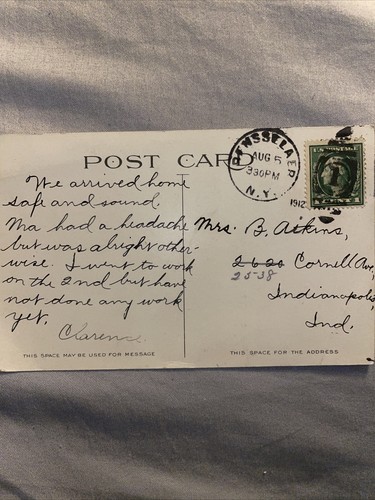 POST CARD
RENSSELAER
AUG 5
330PM
N.Y.
1912
U.S. POSTAGE
We arrived home
safe and sound.
Ma had a headache
but was alright other-
wise. I went to work
on the 2nd but have
not done any work
yet.
Clarence.
Mrs. B. Askins,
2620 Cornell Ave,
25-38
Indianapolis,
Ind.
THIS SPACE MAY BE USED FOR MESSAGE
THIS SPACE FOR THE ADDRESS